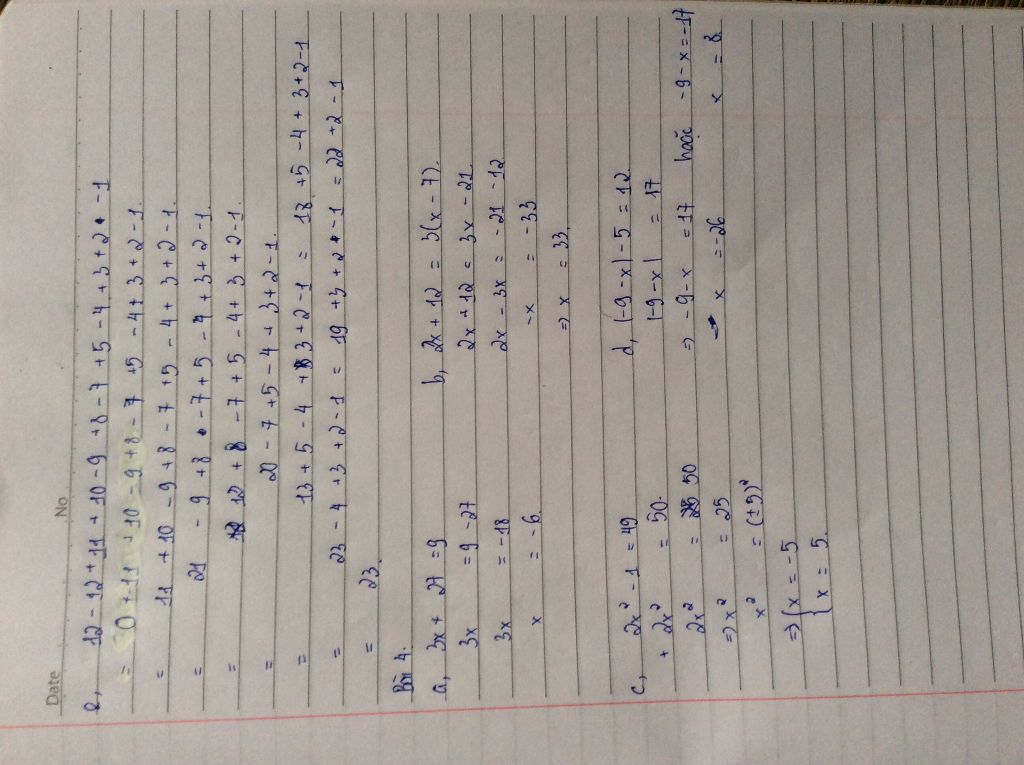 Date No
e, 12 - 12 + 11 + 10 - 9 + 8 - 7 + 5 - 4 + 3 + 2 - 1
= 0 + 11 + 10 - 9 + 8 - 7 + 5 - 4 + 3 + 2 - 1.
= 11 + 10 - 9 + 8 - 7 + 5 - 4 + 3 + 2 - 1.
= 21 - 9 + 8 - 7 + 5 - 4 + 3 + 2 - 1.
= 12 + 8 - 7 + 5 - 4 + 3 + 2 - 1.
= 20 - 7 + 5 - 4 + 3 + 2 - 1.
= 13 + 5 - 4 + 3 + 2 - 1 = 18 + 5 - 4 + 3 + 2 - 1
= 23 - 4 + 3 + 2 - 1 = 19 + 3 + 2 - 1 = 22 + 2 - 1
= 23.
Bài 4.
a, 3x + 27 = 9
3x = 9 - 27
3x = -18
x = -6.
b, 2x + 12 = 3(x - 7).
2x + 12 = 3x - 21.
2x - 3x = -21 - 12
-x = -33
=> x = 33.
c, 2x² - 1 = 49
+ 2x² = 50.
2x² = 50
=> x² = 25
x² = (±5)²
=> { x = -5
x = 5.
d, |-9 - x| - 5 = 12.
|-9 - x| = 17
=> -9 - x = 17 hoặc -9 - x = -17
x = -26 x = 8.